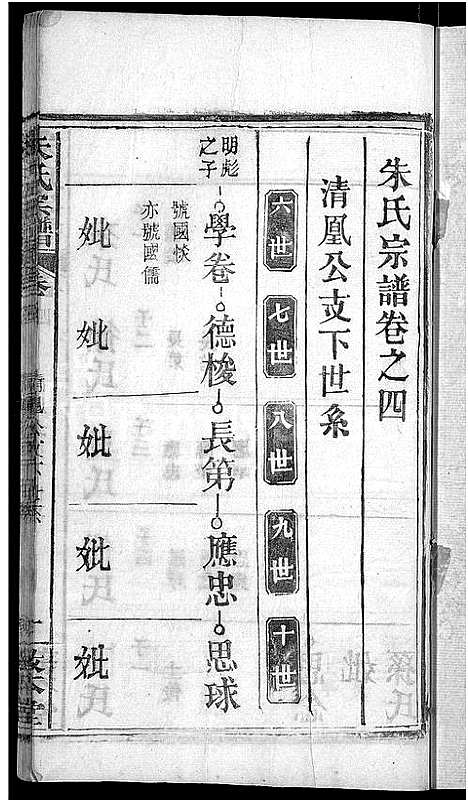 朱氏宗譜卷之四
清凰公支下世系
六世 七世 八世 九世 十世
明彪之子 學卷 德梭 長第 應忠 思球
號國惔
亦號國儒
妣 妣 妣 妣 妣
朱氏宗譜